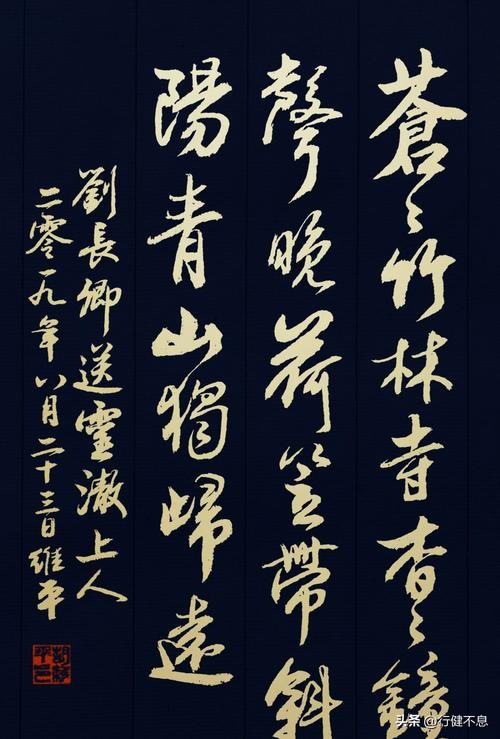 蒼〻竹林寺杳〻鐘
聲晚荷笠帶斜
陽青山獨歸遠
劉長卿送靈澈上人
二零一九年八月二十三日維平
头条 @行健不息